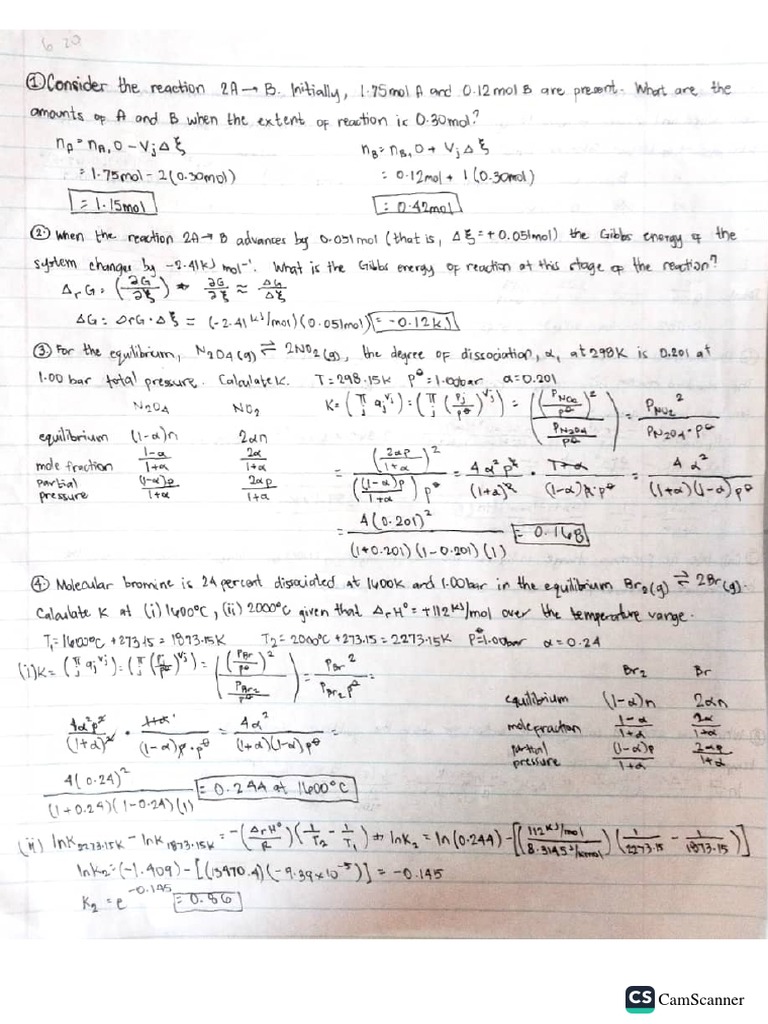 6 20
① Consider the reaction 2A → B. Initially, 1.75mol A and 0.12 mol B are present. What are the
amounts of A and B when the extent of reaction is 0.30mol?
nA = nA,0 − Vj Δξ nB = nB,0 + Vj Δξ
= 1.75mol − 2(0.30mol) = 0.12mol + 1(0.30mol)
= 1.15mol = 0.42mol
② When the reaction 2A → B advances by 0.051mol (that is, Δξ = +0.051mol) the Gibbs energy of the
system changes by −2.41kJ mol⁻¹. What is the Gibbs energy of reaction at this stage of the reaction?
ΔrG = (∂G/∂ξ) → ∂G/∂ξ ≈ ΔG/Δξ
ΔG = ΔrG · Δξ = (−2.41 kJ/mol)(0.051mol) = −0.12kJ
③ For the equilibrium, N₂O₄(g) ⇌ 2NO₂(g), the degree of dissociation, α, at 298K is 0.201 at
1.00 bar total pressure. Calculate K. T = 298.15K P⦵ = 1.00bar α = 0.201
N₂O₄ NO₂ K = (π_j aj^vj) = (π_j (Pj/P⦵)^vj) = ((P_NO₂/P⦵)² / (P_N₂O₄/P⦵)) = P_NO₂² / P_N₂O₄ · P⦵
equilibrium (1−α)n 2αn
mole fraction (1−α)/(1+α) 2α/(1+α) = (2αp/(1+α))² / ((1−α)p/(1+α)) p⦵ = 4α²p²/(1+α)² · (1+α)/((1−α)p·p⦵) = 4α²/((1+α)(1−α)p⦵
partial pressure (1−α)p/(1+α) 2αp/(1+α)
= 4(0.201)² / (1+0.201)(1−0.201)(1) = 0.168
④ Molecular bromine is 24 percent dissociated at 1600K and 1.00bar in the equilibrium Br₂(g) ⇌ 2Br(g).
Calculate K at (i) 1600°C, (ii) 2000°C given that ΔrH° = +112kJ/mol over the temperature range.
T₁ = 1600°C + 273.15 = 1873.15K T₂ = 2000°C + 273.15 = 2273.15K P⦵ = 1.00bar α = 0.24
(i) K = (π_j aj^vj) = (π_j (Pj/P⦵)^vj) = ((P_Br/P⦵)² / (P_Br₂/P⦵)) = P_Br² / P_Br₂ P⦵ =
Br₂ Br
equilibrium (1−α)n 2αn
mole fraction (1−α)/(1+α) 2α/(1+α)
partial pressure (1−α)p/(1+α) 2αp/(1+α)
4α²p²/(1+α)² · (1+α)/((1−α)p·p⦵) = 4α²/((1+α)(1−α)p⦵ =
4(0.24)² / (1+0.24)(1−0.24)(1) = 0.244 at 1600°C
(ii) lnK 2273.15K − lnK 1873.15K = −(ΔrH°/R)(1/T₂ − 1/T₁) → lnK₂ = ln(0.244) − [(112kJ/mol / 8.3145J/kmol)(1/2273.15 − 1/1873.15)]
lnK₂ = (−1.409) − [(13470.4)(−9.39×10⁻⁵)] = −0.145
K₂ = e^−0.145 = 0.86
CS CamScanner